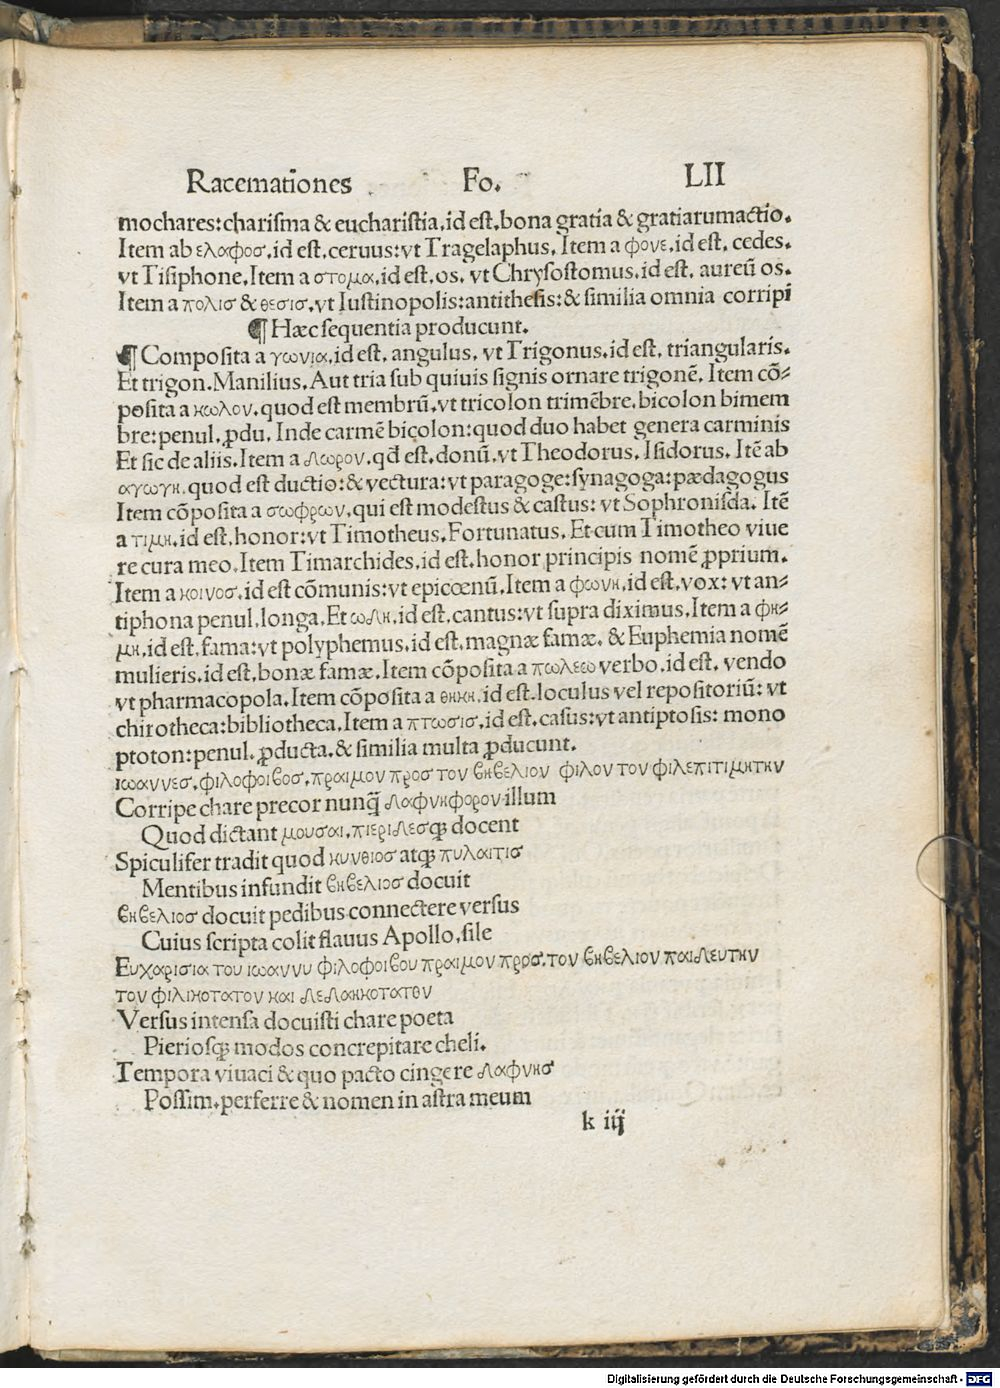 Racemationes Fo. LII
mochares:charisma & eucharistia.id est.bona gratia & gratiarumactio.
Item ab ελαφοσ.id est.ceruus:vt Tragelaphus. Item a φονε.id est. cedes.
vt Tisiphone.Item a στομα.id est.os. vt Chrysostomus.id est. aureū os.
Item a πολισ & θεσισ.vt Iustinopolis:antithesis:& similia omnia corripi
¶ Hæc sequentia producunt.
¶ Composita a γωνια.id est. angulus. vt Trigonus.id est. triangularis.
Et trigon.Manilius. Aut tria sub quiuis signis ornare trigonē. Item cō-
posita a κωλον.quod est membrū.vt tricolon trimēbre.bicolon bimem
bre:penul.ꝓdu. Inde carmē bicolon:quod duo habet genera carminis
Et sic de aliis.Item a δωρον.qđ est.donū.vt Theodorus. Isidorus. Itē ab
αγωγη.quod est ductio:& vectura:vt paragoge:synagoga:pædagogus
Item cōposita a σωφρων.qui est modestus & castus: vt Sophronisda. Itē
a τιμη.id est.honor:vt Timotheus.Fortunatus. Et cum Timotheo viue
re cura meo.Item Timarchides.id est.honor principis nomē ꝓprium.
Item a κοινοσ.id est cōmunis:vt epicœnū.Item a φωνη.id est.vox: vt an-
tiphona penul.longa.Et ωδη.id est.cantus:vt supra diximus.Item a φη-
μη.id est.fama:vt polyphemus.id est.magnæ famæ. & Euphemia nomē
mulieris.id est.bonæ famæ.Item cōposita a πωλεω verbo.id est. vendo
vt pharmacopola.Item cōposita a θηκη.id est.loculus vel repositoriū: vt
chirotheca:bibliotheca.Item a πτωσισ.id est.casus:vt antiptosis: mono
ptoton:penul. ꝓducta.& similia multa ꝓducunt.
ιωαννεσ.φιλοφοιβοσ.πραιμον προσ τον βηβελιον φιλον τον φιλεπιτιμητην
Corripe chare precor nunq̄ δαφνηφορον illum
Quod dictant μουσαι.πιεριδεσꝗ docent
Spiculifer tradit quod κυνθιοσ atꝗ πυλαιτισ
Mentibus infundit βηβελιοσ docuit
βηβελιοσ docuit pedibus connectere versus
Cuius scripta colit flauus Apollo.sile
Ευχαρισια του ιωαννυ φιλοφοιβου πραιμον προσ.τον βηβελιον παιδευτην
τον φιλικοτατον και δεδακκοτατον
Versus intensa docuisti chare poeta
Pieriosꝗ modos concrepitare cheli.
Tempora viuaci & quo pacto cingere δαφνησ
Possim.perferre & nomen in astra meum
k iij
Digitalisierung gefördert durch die Deutsche Forschungsgemeinschaft - DFG